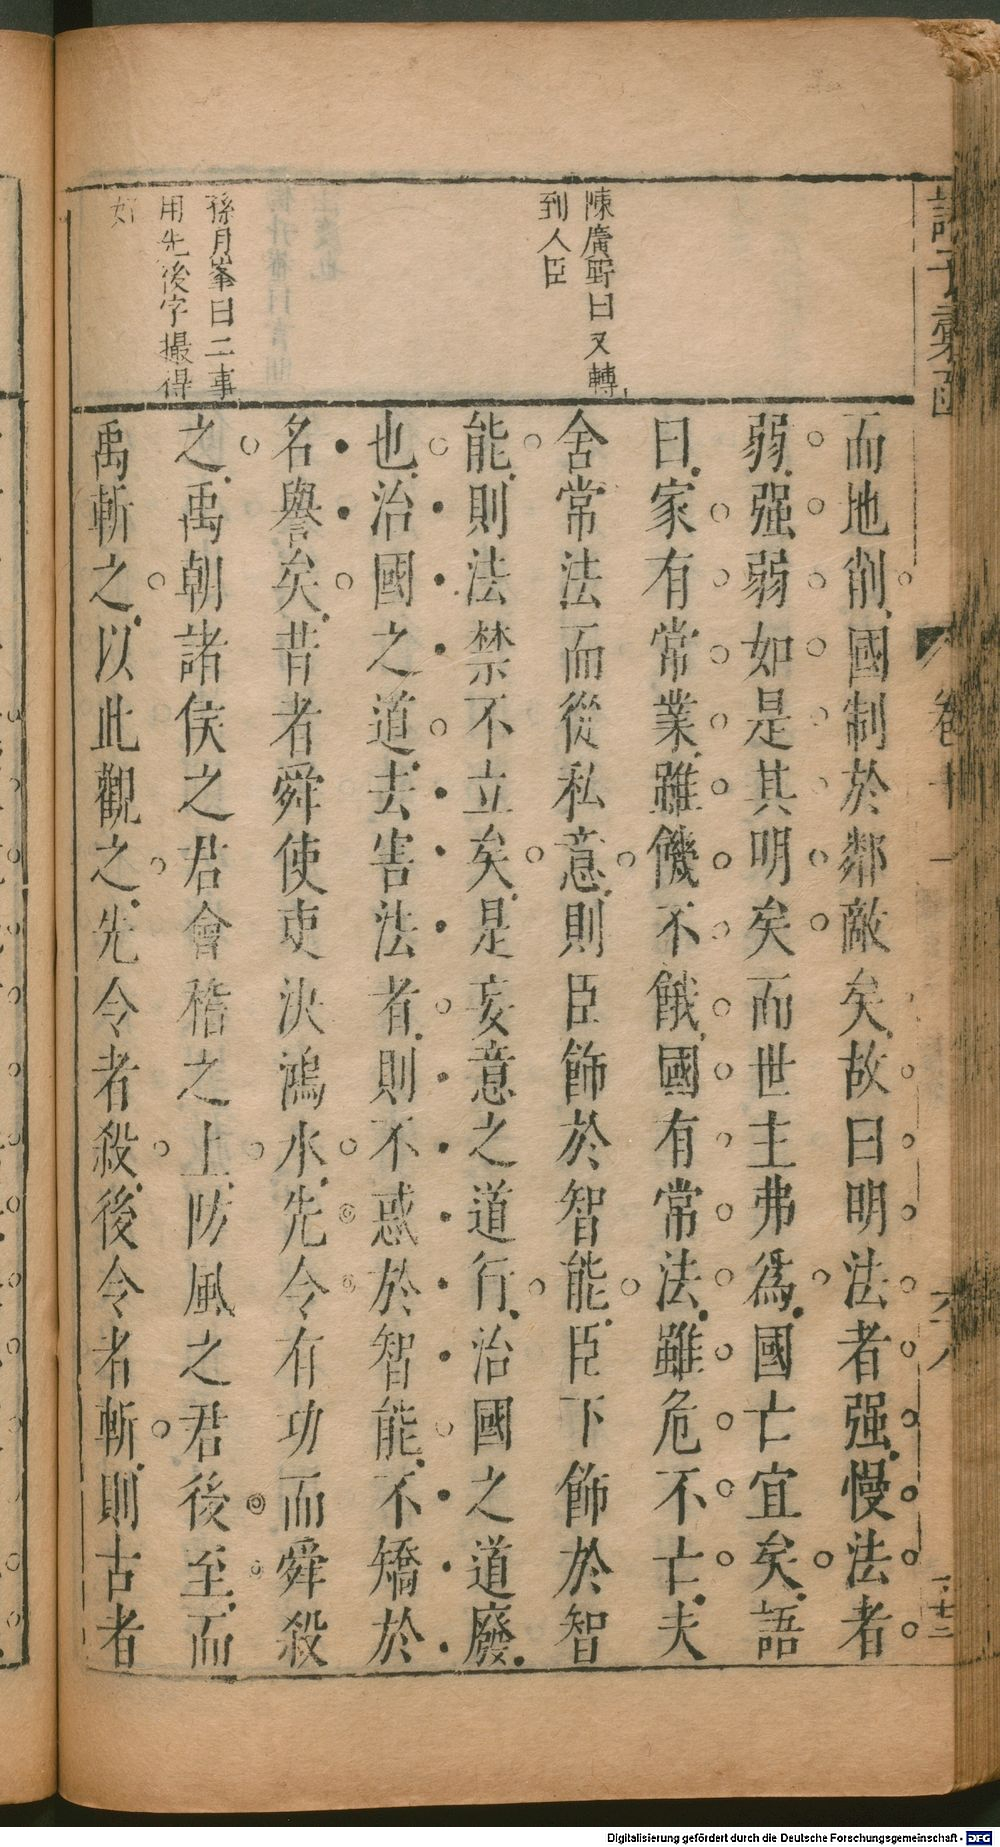 陳廣野曰又轉
到人臣
孫月峯曰二事
用先後字撮得
好
而地削國制於鄰敵矣故曰明法者强慢法者
弱强弱如是其明矣而世主弗爲國亡宜矣語
曰家有常業雖饑不餓國有常法雖危不亡夫
舍常法而從私意則臣臣飾於智能臣下飾於智
能則法禁不立矣是妄意之道行治國之道廢
也治國之道去害法者則不惑於智能不矯於
名譽矣昔者舜使吏決鴻水先令有功而舜殺
之禹朝諸侯之君會稽之上防風之君後至而
禹斬之以此觀之先令者殺後令者斬則古者
Digitalisierung gefördert durch die Deutsche Forschungsgemeinschaft - DFG